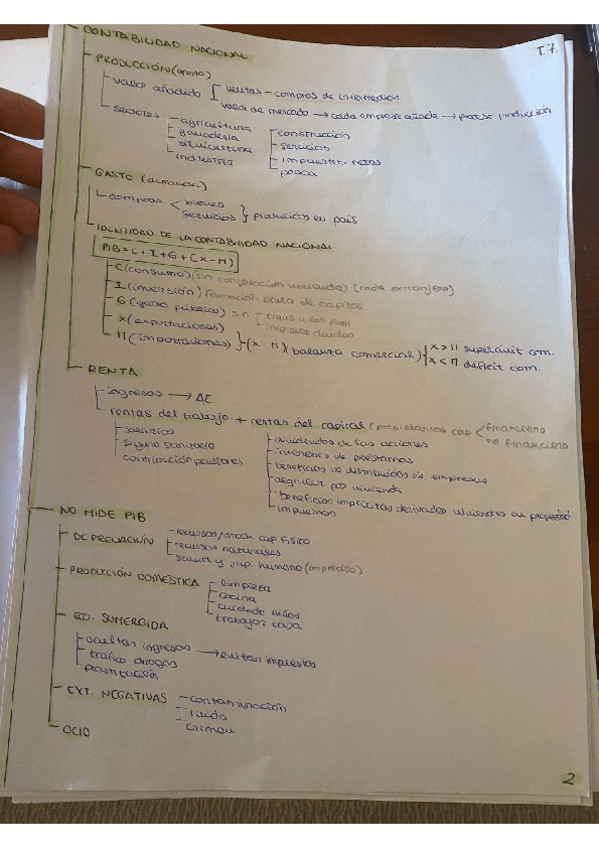 CONTABILIDAD NACIONAL
T.7.
PRODUCCIÓN (oferta)
valor añadido [ ventas - compras de intermedios
valor de mercado → cada empresa añade → proceso producción
sectores - agricultura - construcción
ganadería - servicios
silvicultura - impuestos netos
industria - pesca
GASTO (demanda)
compras < bienes
servicios } producidos en país
IDENTIDAD DE LA CONTABILIDAD NACIONAL
PIB = C + I + G + (X - M)
C (consumo) (sin vivienda) (nada extranjero)
I (inversión) formación bruta de capital
G (gasto público) sin [ trans a las fam
intereses deudas
X (exportaciones)
M (importaciones) } (X M) (balanza comercial) { X > M superávit com.
X < M déficit com.
RENTA
ingresos → AE
rentas del trabajo + rentas del capital (propietarios cap < financiero
no financiero
salarios - dividendos de las acciones
seguro sanitario - intereses de préstamos
contribución pensiones - beneficios no distribuidos de empresas
alquiler por vivienda
beneficios implícitos derivados viviendas en propiedad
impuestos
NO MIDE PIB
DEPRECIACIÓN - recursos/stock cap físico
recursos naturales
salud y cap. humano (impreciso)
PRODUCCIÓN DOMÉSTICA - limpieza
cocina
cuidado niños
trabajos casa
ECO. SUMERGIDA
ocultan ingresos → evitan impuestos
tráfico drogas
prostitución
EXT. NEGATIVAS - contaminación
ruido
crimen
OCIO
2